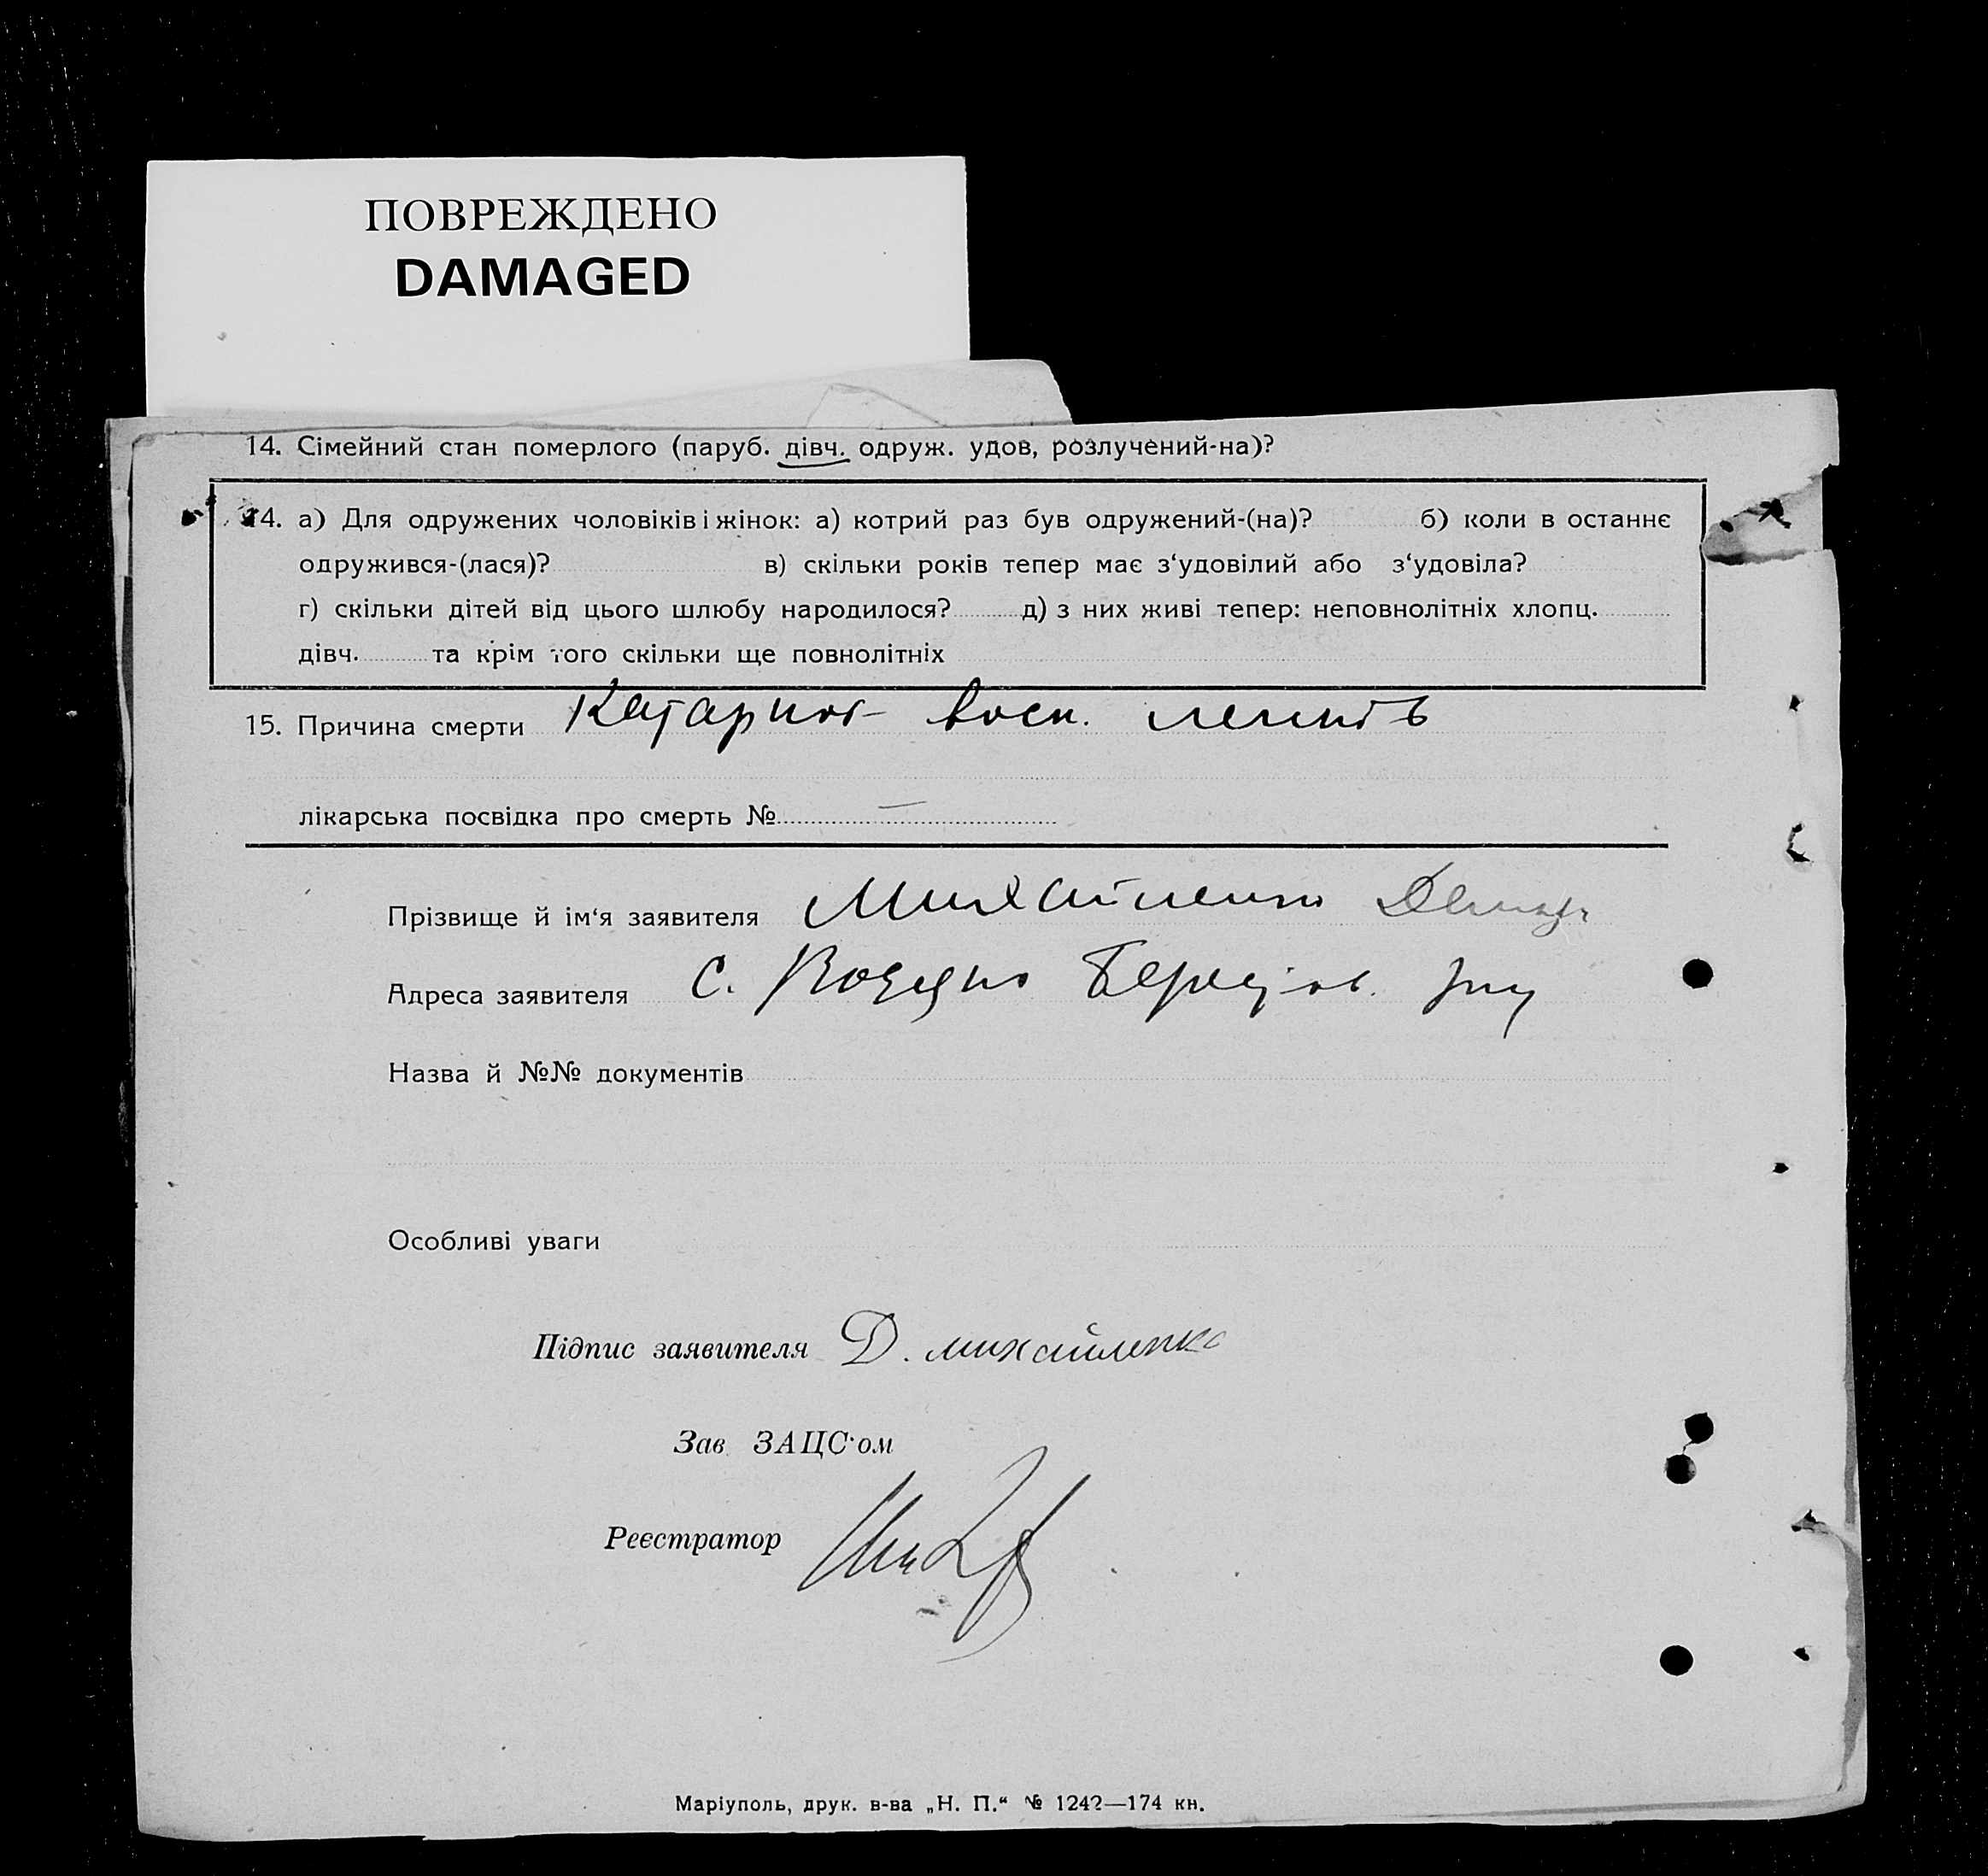 ПОВРЕЖДЕНО
DAMAGED
14. Сімейний стан померлого (паруб. дівч. одруж. удов, розлучений-на)?
14. а) Для одружених чоловіків і жінок: а) котрий раз був одружений-(на)? б) коли в останнє
одружився-(лася)? в) скільки років тепер має з‘удовілий або з‘удовіла?
г) скільки дітей від цього шлюбу народилося? д) з них живі тепер: неповнолітніх хлопц.
дівч. та крім того скільки ще повнолітніх
15. Причина смерти Катарног восп. легенів
лікарська посвідка про смерть № —
Прізвище й ім‘я заявителя Михайленко
Адреса заявителя с.
Назва й №№ документів
Особливі уваги
Підпис заявителя Д. михайленко
Зав. ЗАЦС‘ом
Реєстратор
Маріуполь, друк. в-ва „Н. П.“ № 1242—174 кн.